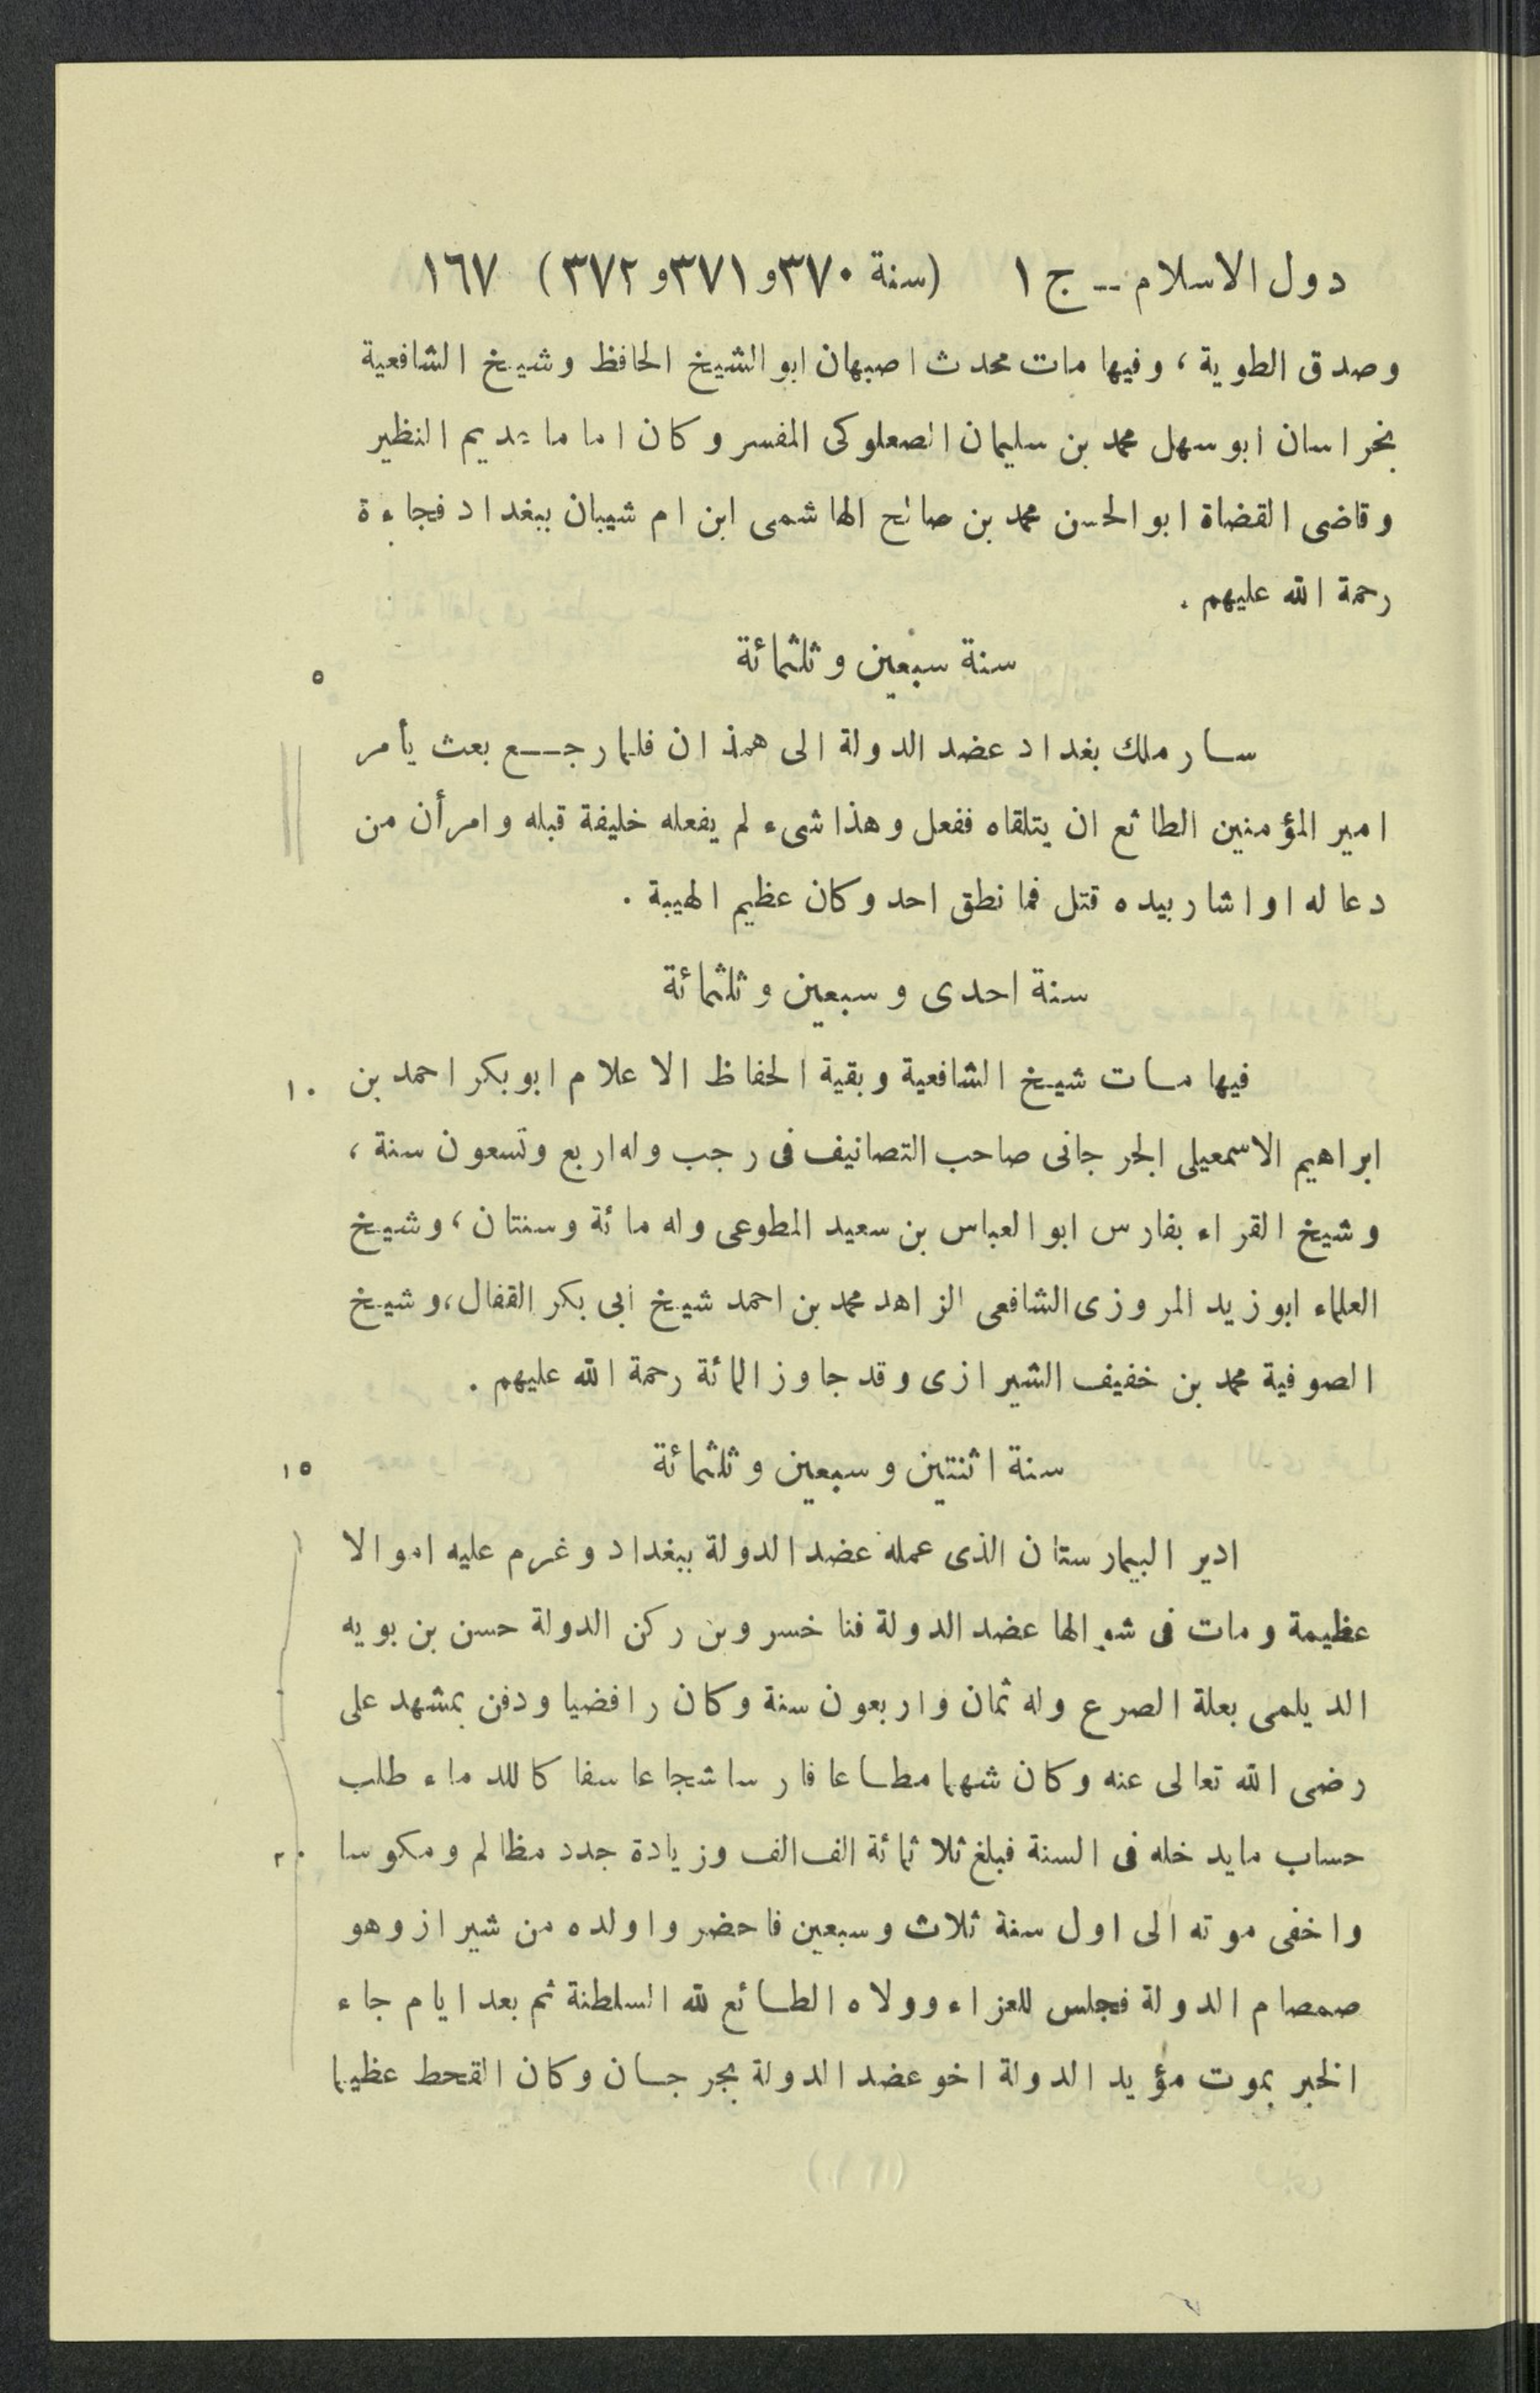 دول الاسلام -- ج ١ (سنة ٣٧٠ و ٣٧١ و ٣٧٢) ١٦٧
وصدق الطوية، وفيها مات محدث اصبهان ابو الشيخ الحافظ وشيخ الشافعية
بخراسان ابو سهل محمد بن سليمان الصعلوكى المفسر وكان اماما عديم النظير
وقاضى القضاة ابو الحسن محمد بن صالح الهاشمى ابن ام شيبان ببغداد فجاءة
رحمة الله عليهم .
سنة سبعين وثلثمائة
٥
سار ملك بغداد عضد الدولة الى همذان فلما رجع بعث يأمر
امير المؤمنين الطائع ان يتلقاه ففعل وهذا شىء لم يفعله خليفة قبله وامر أن من
دعا له او اشار بيده قتل فما نطق احد وكان عظيم الهيبة .
سنة احدى وسبعين وثلثمائة
فيها مات شيخ الشافعية وبقية الحفاظ الاعلام ابو بكر احمد بن
١٠
ابراهيم الاسمعيلى الجرجانى صاحب التصانيف فى رجب وله اربع وتسعون سنة،
وشيخ القراء بفارس ابو العباس بن سعيد المطوعى وله مائة وسنتان، وشيخ
العلماء ابو زيد المروزى الشافعى الزاهد محمد بن احمد شيخ ابى بكر القفال، وشيخ
الصوفية محمد بن خفيف الشيرازى وقد جاوز المائة رحمة الله عليهم .
سنة اثنتين وسبعين وثلثمائة
١٥
ادير البيمارستان الذى عمله عضد الدولة ببغداد وغرم عليه اموالا
عظيمة ومات فى شوالها عضد الدولة فنا خسرو بن ركن الدولة حسن بن بويه
الديلمى بعلة الصرع وله ثمان واربعون سنة وكان رافضيا ودفن بمشهد على
رضى الله تعالى عنه وكان شهما مطاعا فارسا شجاعا سفاكا للدماء طلب
حساب مايدخله فى السنة فبلغ ثلاثمائة الف الف وزيادة جدد مظالم ومكوسا
٢٠
واخفى موته الى اول سنة ثلاث وسبعين فاحضروا ولده من شيراز وهو
صمصام الدولة فجلس للعزاء وولاه الطائع لله السلطنة ثم بعد ايام جاء
الخبر بموت مؤيد الدولة اخو عضد الدولة بجرجان وكان القحط عظيما